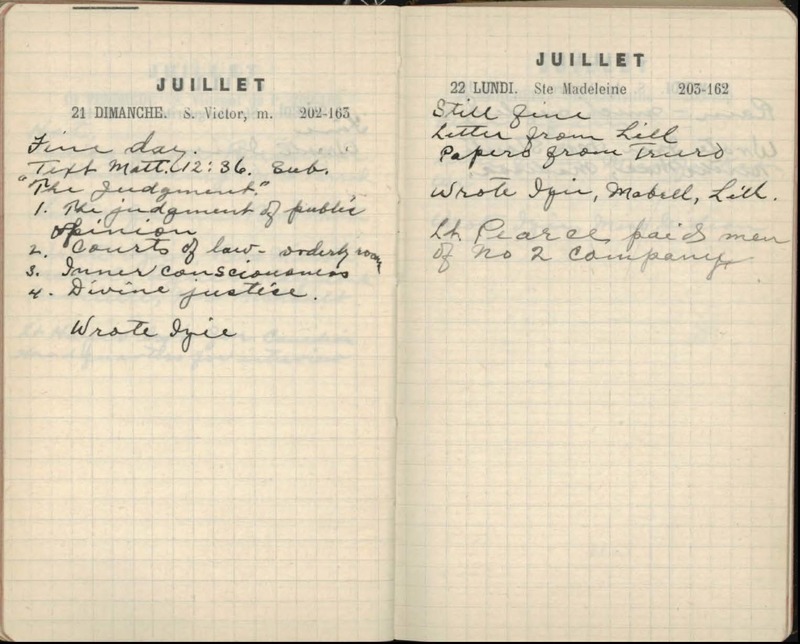 JUILLET
21 DIMANCHE. S. Victor, m. 202-163
Fine day.
Text Matt. 12:36. Sub.
"The Judgment."
1. The judgment of public
opinion
2. Courts of law - orderly room
3. Inner consciousness
4. Divine justice.
Wrote Izie
JUILLET
22 LUNDI. Ste Madeleine 203-162
Still fine
Letter from Lill
Papers from Truro
Wrote Izie, Mabell, Lill.
Lt. Pearce paid men
of No 2 Company